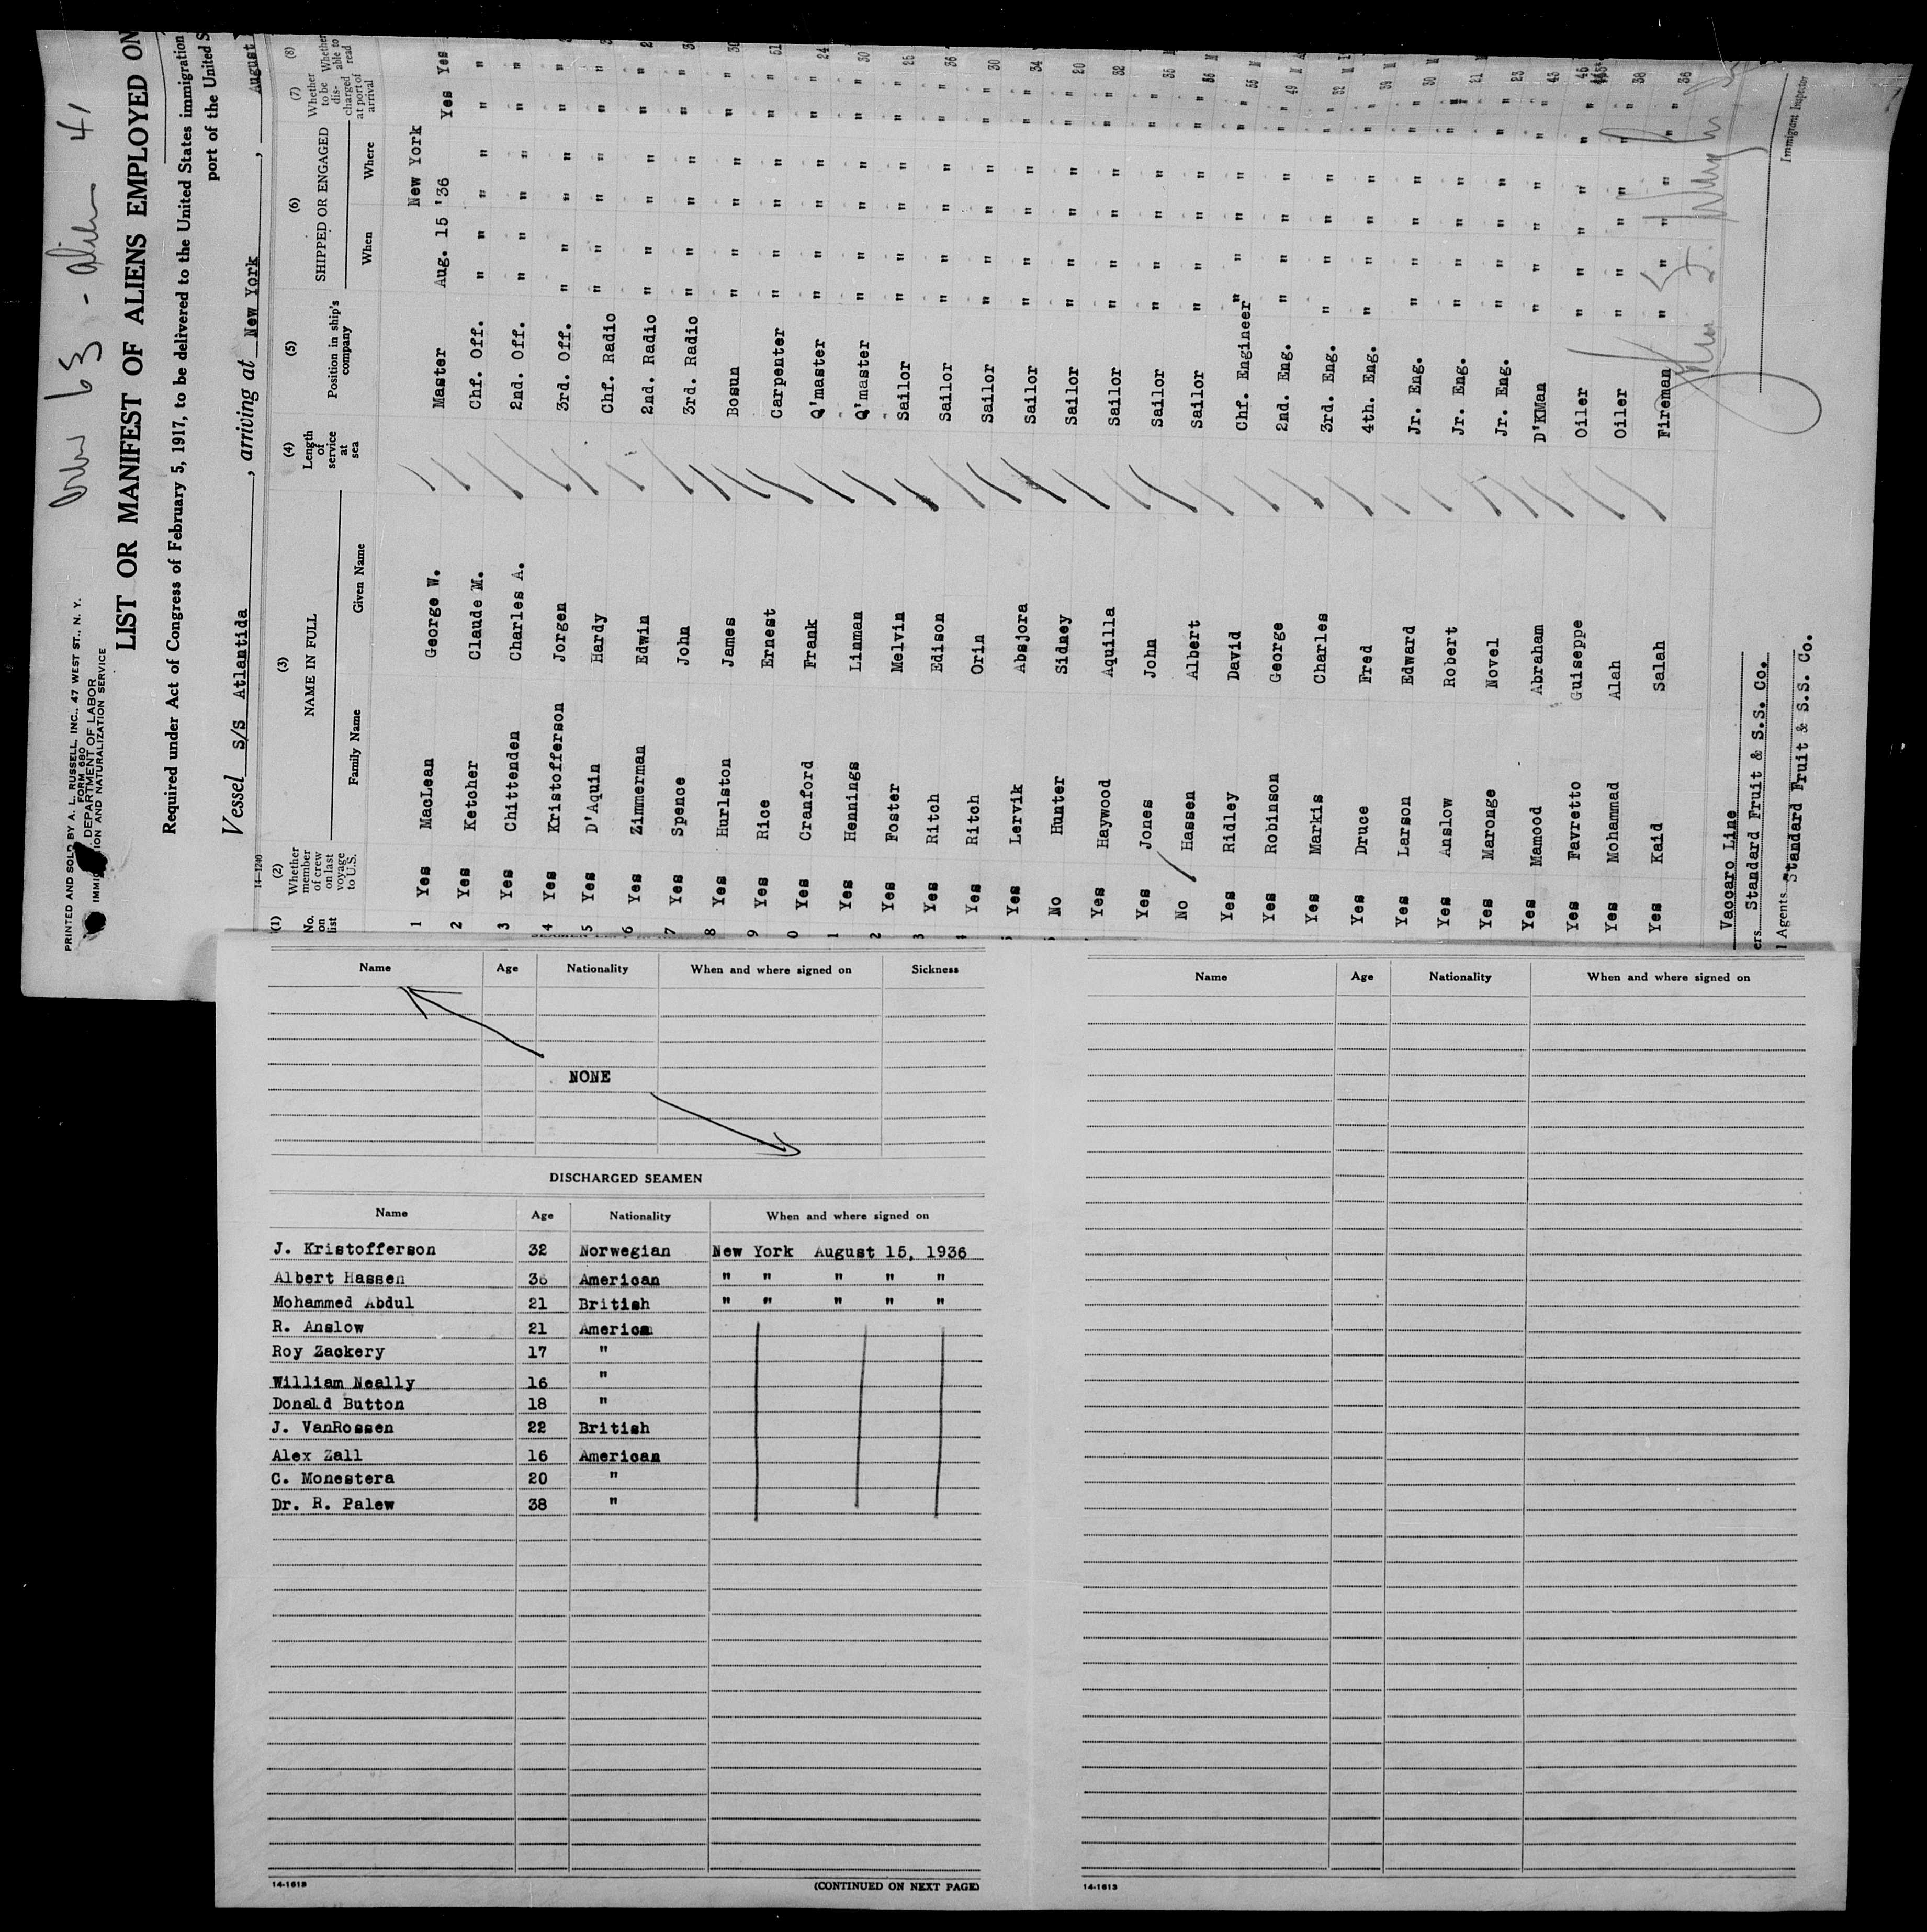 PRINTED AND SOLD BY A. L. RUSSELL, INC., 47 WEST ST., N. Y.
FORM 680
DEPARTMENT OF LABOR
IMMIGRATION AND NATURALIZATION SERVICE
63 - alien 41
LIST OR MANIFEST OF ALIENS EMPLOYED ON
Required under Act of Congress of February 5, 1917, to be delivered to the United States immigration
port of the United S
Vessel s/s Atlantida, arriving at New York, August
14-1240
(1) No. on list (2) Whether member of crew on last voyage to U.S. (3) NAME IN FULL Family Name Given Name (4) Length of service at sea (5) Position in ship's company (6) SHIPPED OR ENGAGED When Where (7) Whether to be discharged at port of arrival (8) Whether able to read
1 Yes MacLean George W. Master Aug. 15 '36 New York Yes Yes
2 Yes Ketcher Claude M. Chf. Off. " " " " "
3 Yes Chittenden Charles A. 2nd. Off. " " " " "
4 Yes Kristofferson Jorgen 3rd. Off. " " " " " "
5 Yes D'Aquin Hardy Chf. Radio " " " " " "
6 Yes Zimmerman Edwin 2nd. Radio " " " " " "
7 Yes Spence John 3rd. Radio " " " " " "
8 Yes Hurlston James Bosun " " " " " " 30
9 Yes Rice Ernest Carpenter " " " " " " 51
0 Yes Cranford Frank Q'master " " " " " " 24
1 Yes Hennings Linman Q'master " " " " " " 30
2 Yes Foster Melvin Sailor " " " " " " 25
3 Yes Ritch Edison Sailor " " " " " " 36
4 Yes Ritch Orin Sailor " " " " " " 30
5 Yes Lervik Absjora Sailor " " " " " " 34
No Hunter Sidney Sailor " " " " " " 20
Yes Haywood Aquilla Sailor " " " " " " 32
Yes Jones John Sailor " " " " " " 35
No Hassen Albert Sailor " " " " " " 36 M
Yes Ridley David Chf. Engineer " " " " " " 55 M
Yes Robinson George 2nd. Eng. " " " " " " 49 M
Yes Markis Charles 3rd. Eng. " " " " " " 32 M
Yes Druce Fred 4th. Eng. " " " " " " 39 M
Yes Larson Edward Jr. Eng. " " " " " " 30 M
Yes Anslow Robert Jr. Eng. " " " " " " 21 M
Yes Maronge Novel Jr. Eng. " " " " " " 23
Yes Mamood Abraham D'KMan " " " " " " 43
Yes Favretto Guiseppe Oiler " " " " " " 45
Yes Mohammad Alah Oiler " " " " " " 38
Yes Kaid Salah Fireman " " " " " " 36
Vaccaro Line
ers Standard Fruit & S.S. Co.
l Agents Standard Fruit & S.S. Co.
Immigrant Inspector
Name Age Nationality When and where signed on Sickness
NONE
DISCHARGED SEAMEN
Name Age Nationality When and where signed on
J. Kristofferson 32 Norwegian New York August 15, 1936
Albert Hassen 36 American " " " " "
Mohammed Abdul 21 British " " " " "
R. Anslow 21 America
Roy Zackery 17 "
William Neally 16 "
Donald Button 18 "
J. VanRossen 22 British
Alex Zall 16 American
C. Monestera 20 "
Dr. R. Palew 38 "
14-1613
(CONTINUED ON NEXT PAGE)
Name Age Nationality When and where signed on
14-1613